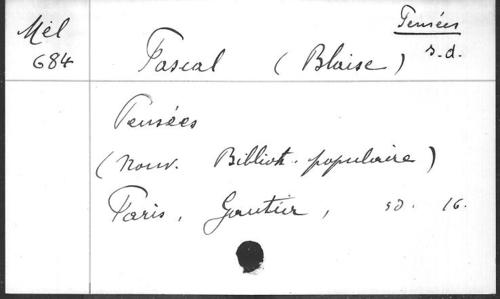 Mél
684
Pensées
s.d.
Pascal (Blaise)
Pensées
(Nouv. Billiot. populaire)
Paris, Gautier, sd. 16.